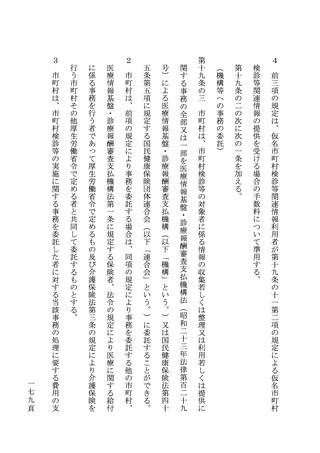 ４　前三項の規定は、仮名市町村検診等関連情報利用者が第十九条の十一第二項の規定による仮名市町村
検診等関連情報の提供を受ける場合の手数料について準用する。
第十九条の二の次に次の一条を加える。
（機構等への事務の委託）
第十九条の三　市町村は、市町村検診等の対象者に係る情報の収集若しくは整理又は利用若しくは提供に
関する事務の全部又は一部を医療情報基盤・診療報酬審査支払機構法（昭和二十三年法律第百二十九
号）による医療情報基盤・診療報酬審査支払機構（以下「機構」という。）又は国民健康保険法第四十
五条第五項に規定する国民健康保険団体連合会（以下「連合会」という。）に委託することができる。
２　市町村は、前項の規定により事務を委託する場合は、同項の規定により事務を委託する他の市町村、
医療情報基盤・診療報酬審査支払機構法第一条に規定する保険者、法令の規定により医療に関する給付
に係る事務を行う者であって厚生労働省令で定めるもの及び介護保険法第三条の規定により介護保険を
行う市町村その他厚生労働省令で定める者と共同して委託するものとする。
３　市町村は、市町村検診等の実施に関する事務を委託した者に対する当該事務の処理に要する費用の支
一七九頁